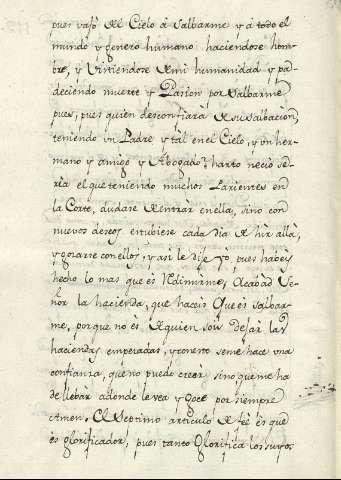 pues vajó del Cielo á Salbarme y á todo el
mundo y genero humano haciendose hom-
bre, y Virtiendose de mi humanidad y pa-
deciendo muerte y Pasion por Salbarme
pues, pues quien desconfiará de su salbacion,
teniendo un Padre y tal en el Cielo, y un her-
mano y amigo y Abogado? harto necio se-
ria el que teniendo muchos Parientes en
la Corte, dudase de entrar en ella, sino con
nuevos deseos estubiese cada dia de hir allá,
y gozarse con ellos, y asi le dije yo, pues habeys
hecho lo mas que es Redimirme, Acabad Se-
ñor la hacienda, que haceis Que es salbar-
me, porque no es de quien sois dejar las
haciendas empezadas, y con esto se me hace una
confianza, que no puedo creer sino que me ha
de llebar adonde le vea y goce por siempre
Amen. El Septimo articulo de feé es que
es glorificador, pues tanto Glorifica los suyos